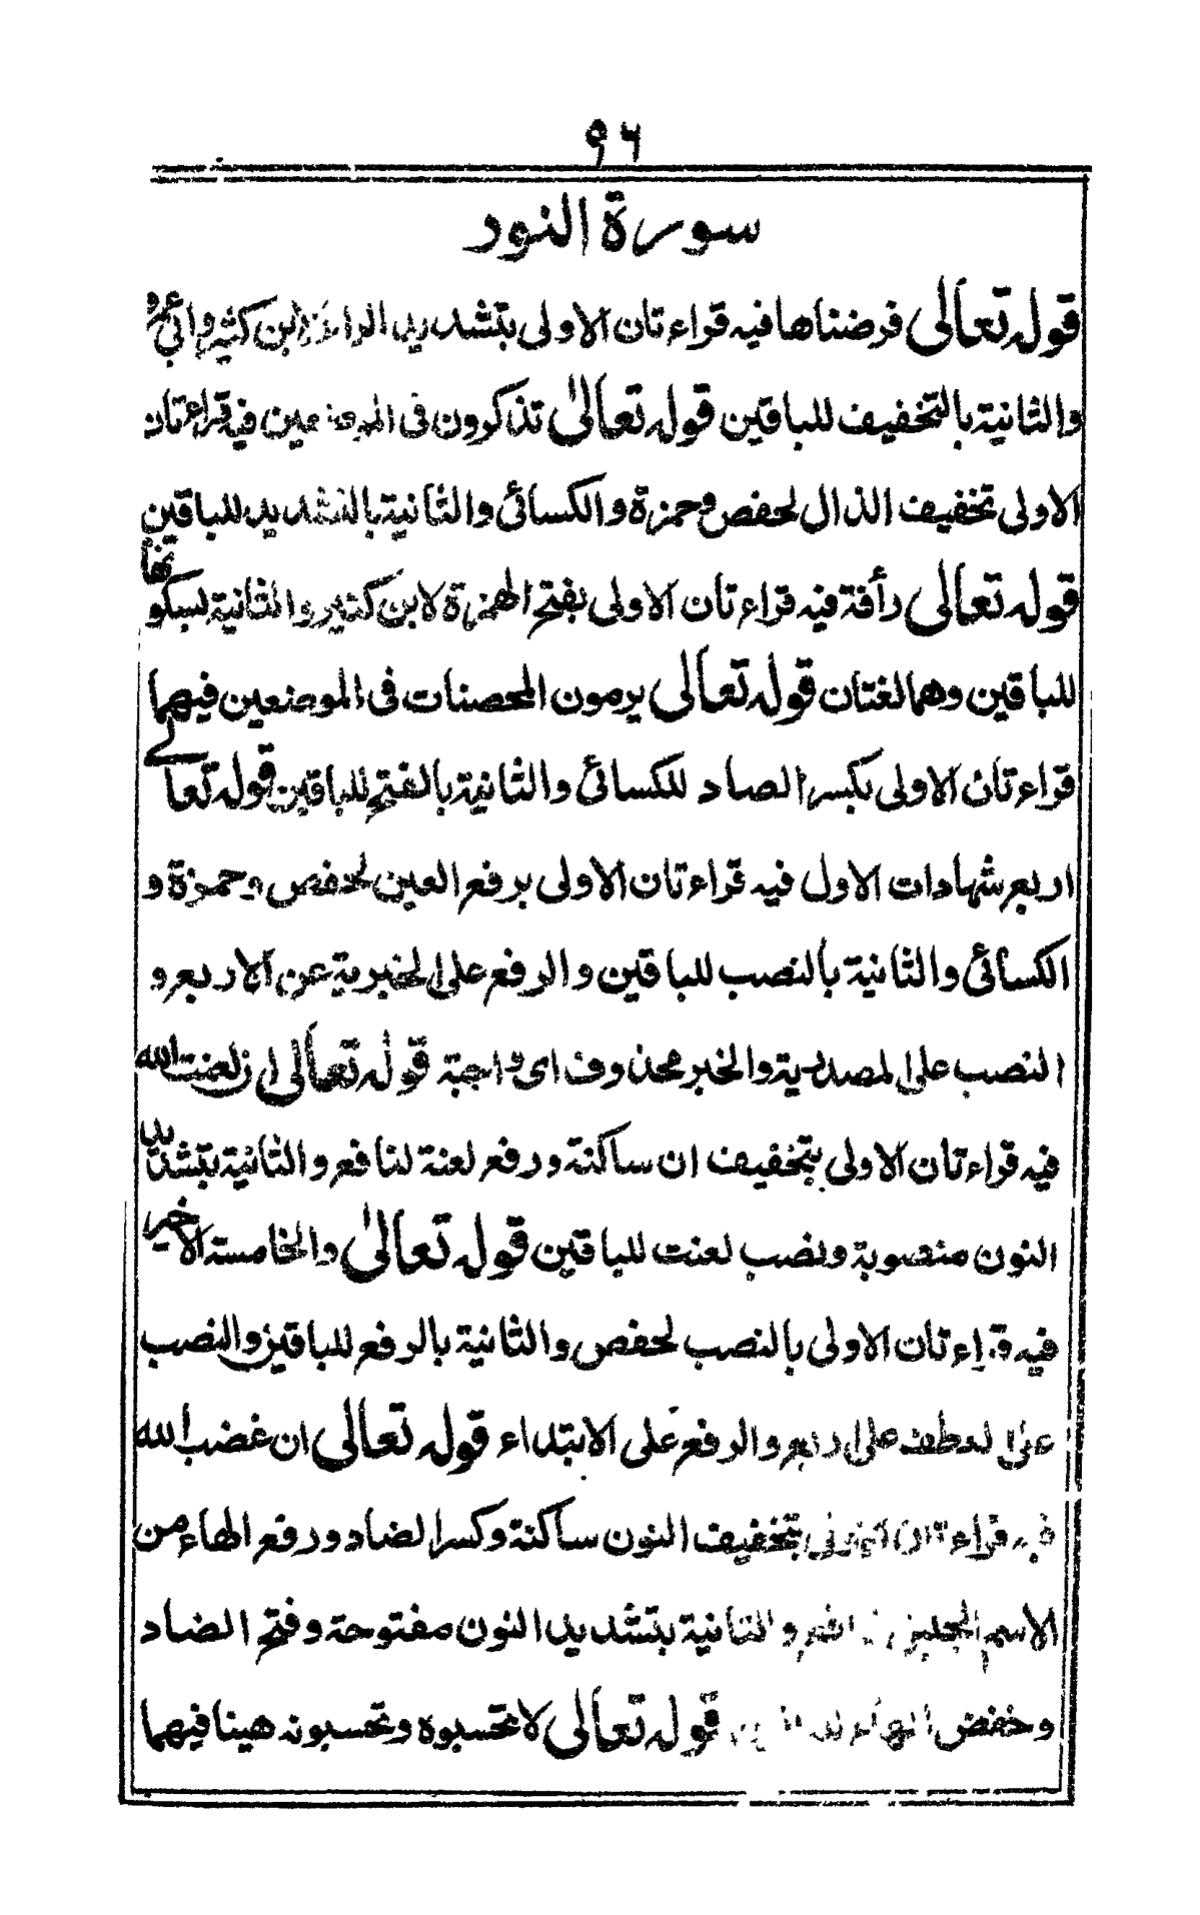 ٩٦
سورة النور
قوله تعالى فرضناها فيه قراءتان الاولى بتشديد الراء لابن كثير وابي
والثانية بالتخفيف للباقين قوله تعالىٰ تذكرون فى الموضعين فيه قراءتان
الاولى تخفيف الذال لحفص وحمزة والكسائى والثانية بالتشديد للباقين
قوله تعالى رأفة فيه قراءتان الاولى بفتح الهمزة لابن كثير والثانية بسكونها
للباقين وهما لغتان قوله تعالى يرمون المحصنات فى الموضعين فيهما
قراءتان الاولى بكسر الصاد للكسائى والثانية بالفتح للباقين قوله تعالے
اربع شهادات الاول فيه قراءتان الاولى برفع العين لحفص وحمزة و
الكسائى والثانية بالنصب للباقين والرفع على الخبرية عن الاربع و
النصب على المصدرية والخبر محذوف اى واجبة قوله تعالى ان لعنت الله
فيه قراءتان الاولى بتخفيف ان ساكنة ورفع لعنة لنافع والثانية بتشديد
النون منصوبة ونصب لعنت للباقين قوله تعالىٰ والخامسة الاخير
فيه قراءتان الاولى بالنصب لحفص والثانية بالرفع للباقين والنصب
على العطف على اربع والرفع على الابتداء قوله تعالى ان غضب الله
فيه قراءتان الاولى بتخفيف النون ساكنة وكسر الضاد ورفع الهاء من
الاسم الجليل لنافع والثانية بتشديد النون مفتوحة وفتح الضاد
وخفض الهاء قوله تعالىٰ لا تحسبوه وتحسبونه هينا فيهما